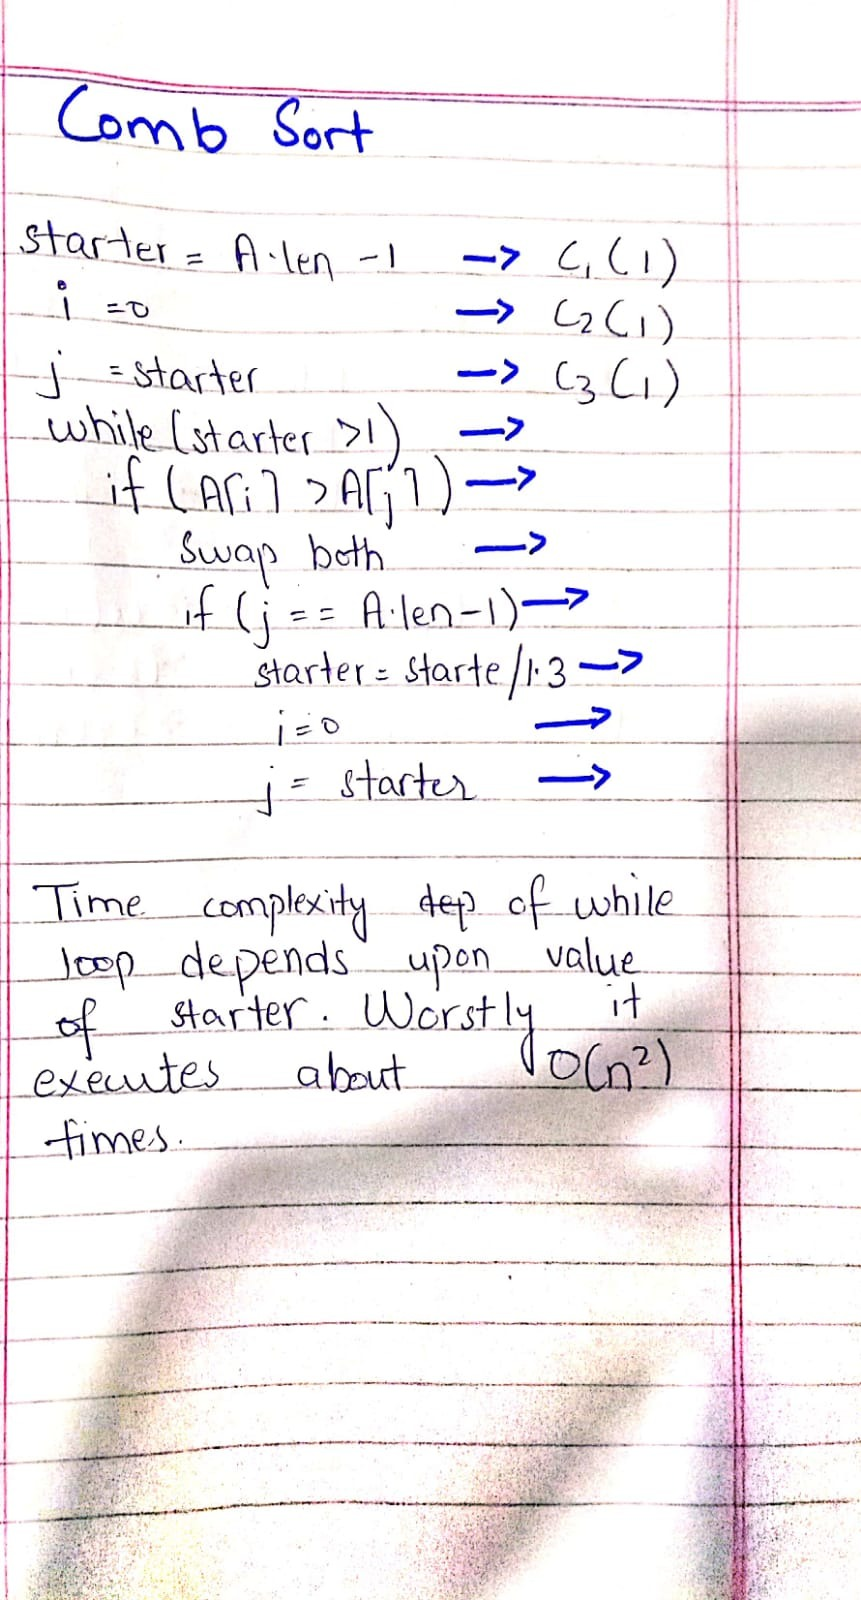 Comb Sort
starter = A.len -1 -> C1(1)
i =0 -> C2(1)
j =starter -> C3(1)
while(starter >1) ->
if (A[i] > A[j]) ->
Swap both ->
if (j == A.len-1) ->
starter = starte/1.3 ->
i=0 ->
j= starter ->
Time complexity dep of while
loop depends upon value
of starter. Worstly it
executes about O(n²)
times.